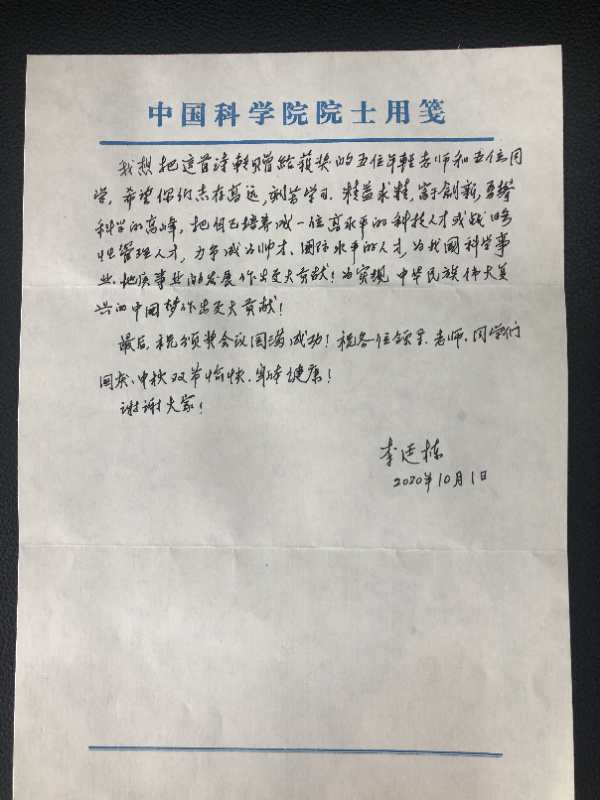 中国科学院院士用笺
我想把这首诗转赠给获奖的五位年轻老师和五位同
学,希望你们志存高远,刻苦学习,精益求精,富于创新,勇攀
科学的高峰,把自己培养成一位高水平的科技人才或战略
性管理人才,力争成为帅才、国际水平的人才,为我国科学事
业、地质事业的发展作出更大贡献!为实现中华民族伟大复
兴的中国梦作出更大贡献!
最后,祝颁奖会议圆满成功!祝各位领导、老师、同学们
国庆、中秋双节愉快、身体健康!
谢谢大家!
李廷栋
2020年10月1日